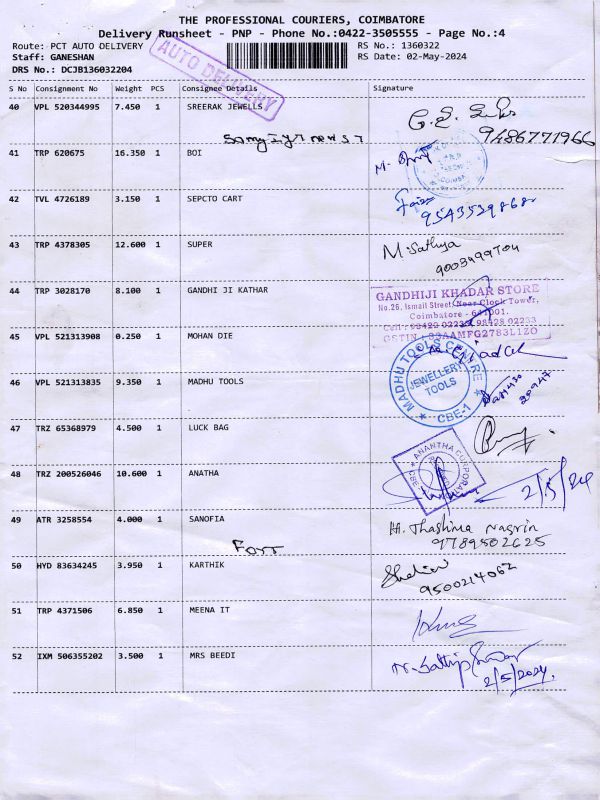 THE PROFESSIONAL COURIERS, COIMBATORE
Delivery Runsheet - PNP - Phone No.:0422-3505555 - Page No.:4
Route: PCT AUTO DELIVERY RS No.: 1360322
Staff: GANESHAN RS Date: 02-May-2024
DRS No.: DCJB136032204
AUTO DELIVERY
S No Consignment No Weight PCS Consignee Details Signature
40 VPL 520344995 7.450 1 SREERAK JEWELLS
9486771966
41 TRP 620675 16.350 1 BOI
42 TVL 4726189 3.150 1 SEPCTO CART
43 TRP 4378305 12.600 1 SUPER M. Sathya
44 TRP 3028170 8.100 1 GANDHI JI KATHAR
GANDHIJI KHADAR STORE
No.26, Ismail Street, Near Clock Tower,
Coimbatore - 641001.
Cell : 98422 02233, 98428 02233
GSTIN : 33AAMFG2783L1ZO
45 VPL 521313908 0.250 1 MOHAN DIE
46 VPL 521313835 9.350 1 MADHU TOOLS
MADHU TOOLS CENTRE
JEWELLERY
TOOLS
CBE-1
47 TRZ 65368979 4.500 1 LUCK BAG
48 TRZ 200526046 10.600 1 ANATHA
ANANTHA CORPORATION
CBE
2/5/24
49 ATR 3258554 4.000 1 SANOFIA H. Thashima Nasrin
9789502625
Fort
50 HYD 83634245 3.950 1 KARTHIK
9500214062
51 TRP 4371506 6.850 1 MEENA IT
52 IXM 506355202 3.500 1 MRS BEEDI
2/5/2024.